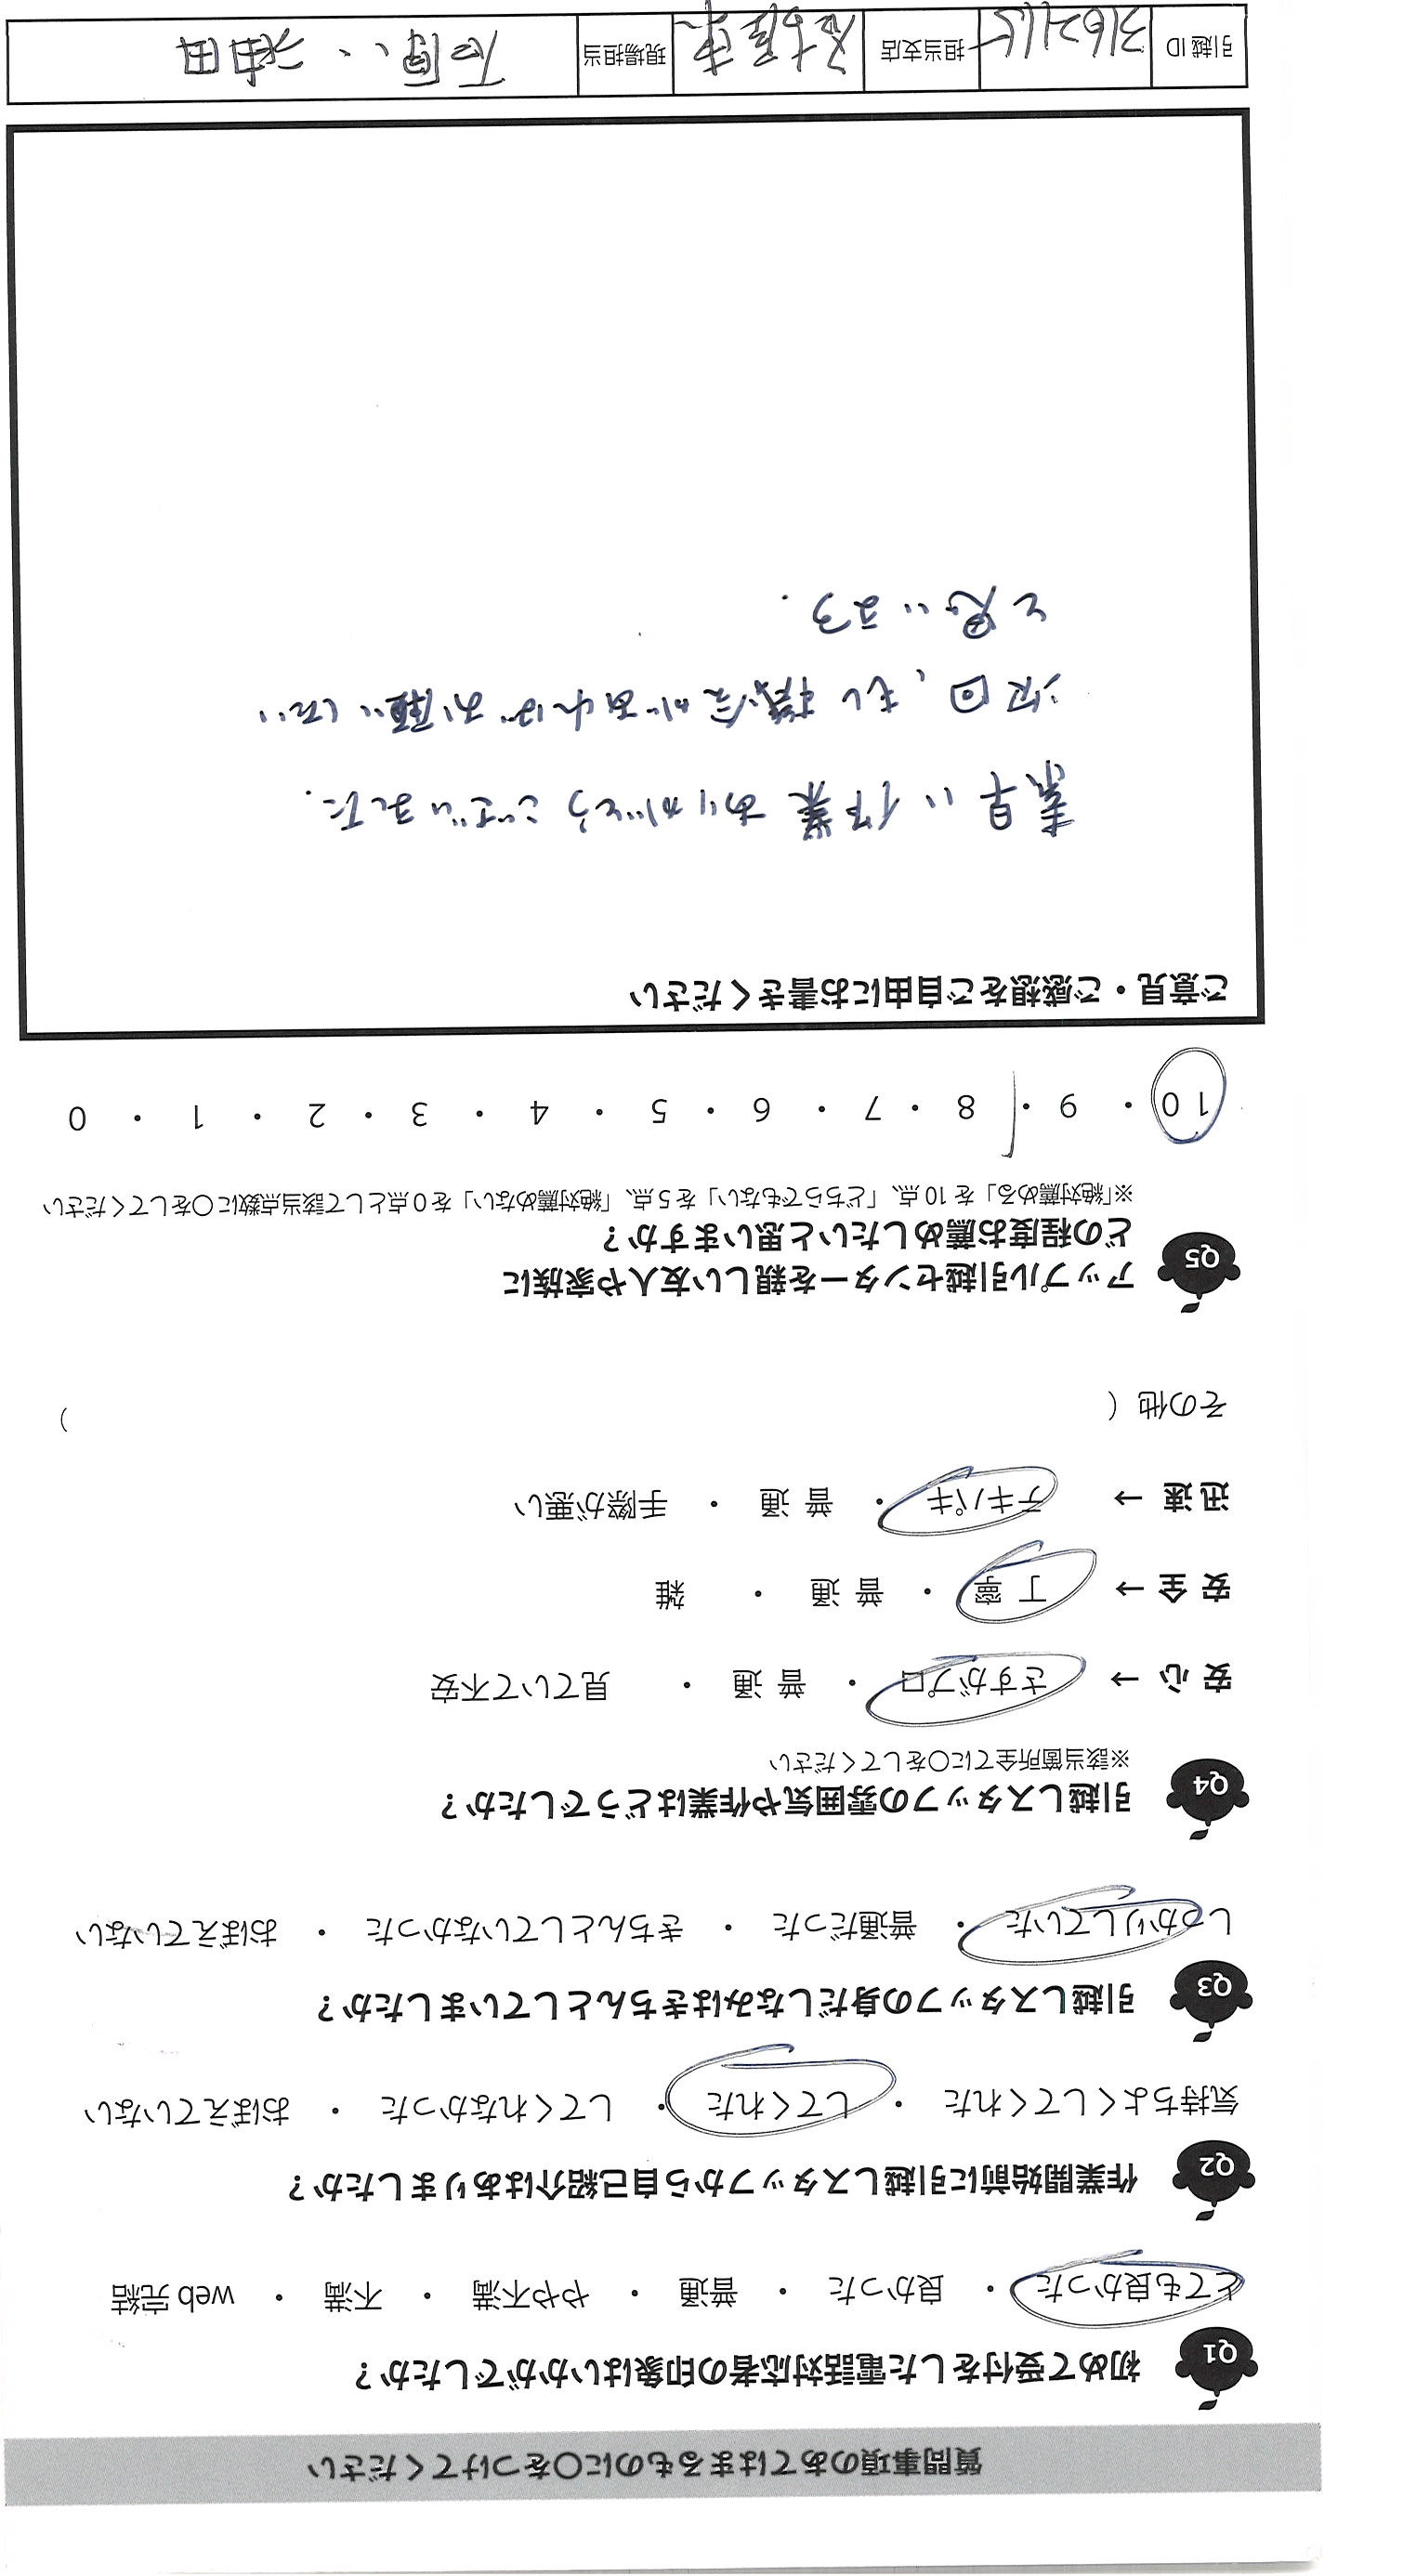 質問事項のあてはまるものに〇をつけてください
Q1 初めて受付をした電話対応者の印象はいかがでしたか？
とても良かった ・ 良かった ・ 普通 ・ やや不満 ・ 不満 ・ web 完結
Q2 作業開始前に引越しスタッフから自己紹介はありましたか？
気持ちよくしてくれた ・ してくれた ・ してくれなかった ・ おぼえていない
Q3 引越しスタッフの身だしなみはきちんとしていましたか？
しっかりしていた ・ 普通だった ・ きちんとしていなかった ・ おぼえていない
Q4 引越しスタッフの雰囲気や作業はどうでしたか？
※該当箇所全てに〇をしてください
安 心 → さすがプロ ・ 普 通 ・ 見ていて不安
安 全 → 丁 寧 ・ 普 通 ・ 雑
迅 速 → テキパキ ・ 普 通 ・ 手際が悪い
その他（ ）
Q5 アップル引越センターを親しい友人や家族に
どの程度お薦めしたいと思いますか？
※「絶対薦める」を 10 点、「どちらでもない」を 5 点、「絶対薦めない」を 0 点として該当点数に〇をしてください
10 ・ 9 ・ 8 ・ 7 ・ 6 ・ 5 ・ 4 ・ 3 ・ 2 ・ 1 ・ 0
ご意見・ご感想をご自由にお書きください
素早い作業ありがとうございました.
次回、もし機会があればお願いしたい
と思います.
引越 ID 3162115 担当支店 名古屋東 現場担当